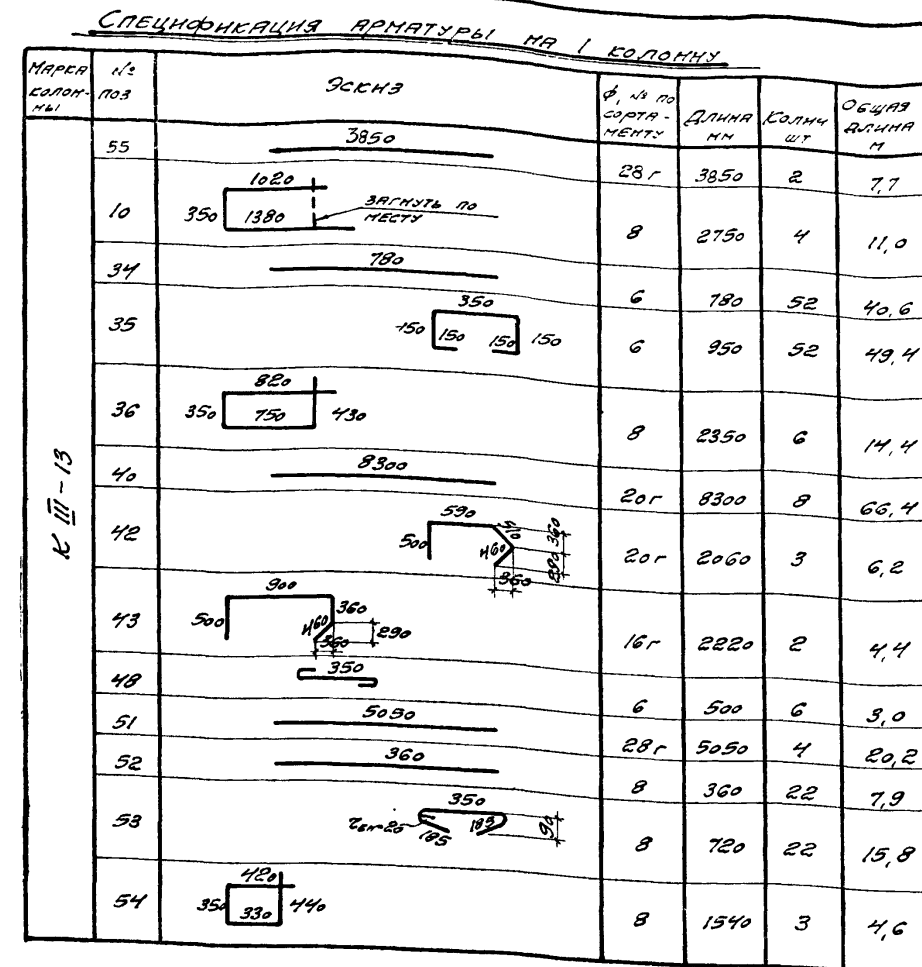 Спецификация арматуры на 1 колонну
Марка колон-ны № поз Эскиз ф, № по сорта-менту Длина мм Колич шт Общая длина м
К III-13
55 3850 28г 3850 2 7,7
10 1020 350 1380 загнуть по месту 8 2750 4 11,0
34 780 6 780 52 40,6
35 350 150 150 150 150 6 950 52 49,4
36 820 350 750 430 8 2350 6 14,4
40 8300 20г 8300 8 66,4
42 590 500 510 460 360 290 360 20г 2060 3 6,2
43 900 500 360 460 290 360 16г 2220 2 4,4
48 350 6 500 6 3,0
51 5050 28г 5050 4 20,2
52 360 8 360 22 7,9
53 350 185 185 90 8 720 22 15,8
54 420 350 330 440 8 1540 3 4,6